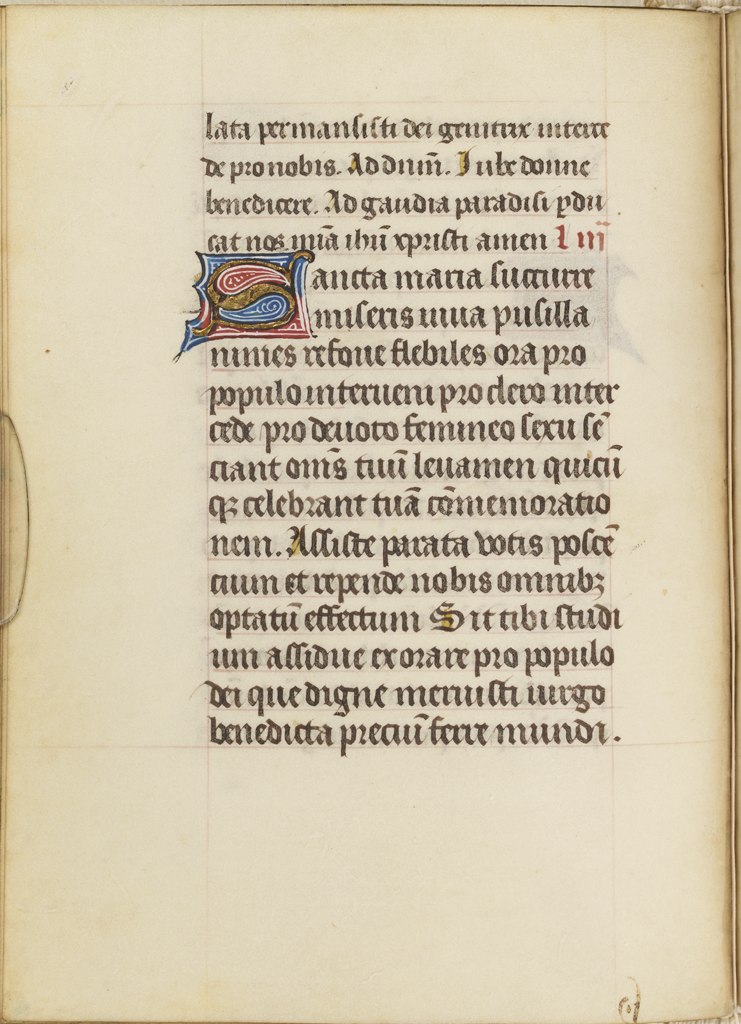 lata permansisti dei genitrix interce
de pro nobis. Ad dnm̄. Iube donne
benedicere. Ad gaudia paradisi ꝑdu
cat nos mīa ihū xpristi amen L iij
Sancta maria succurre
miseris iuua pusilla
nimes refoue flebiles ora pro
populo interueni pro clero inter
cede pro deuoto femineo sexu sē
ciant om̄s tuū leuamen quicū
qꝫ celebrant tuā cōmemoratio
nem. Assiste parata votis poscē
cium et repende nobis omnibꝫ
optatū effectum Sit tibi studi
um assidue exorare pro populo
dei que digne meruisti uirgo
benedicta preciū ferre mundi.